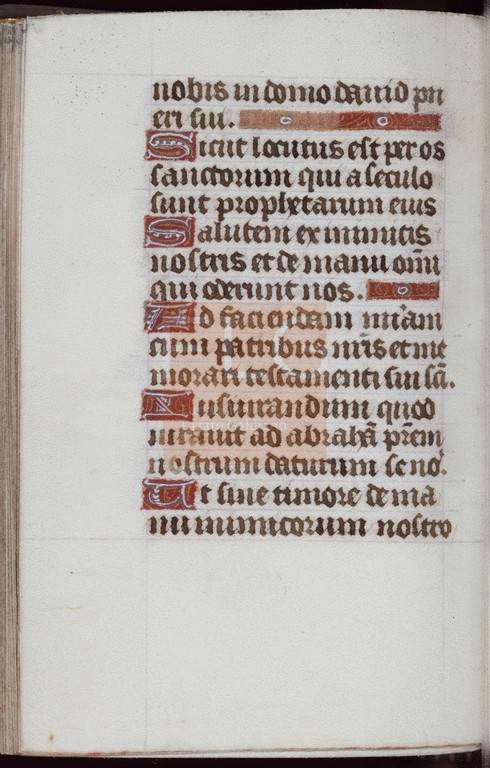 nobis in domo dauid pu
eri sui.
Sicut locutus est per os
sanctorum qui a seculo
sunt prophetarum eius
Salutem ex inimicis
nostris et de manu om̄i
qui oderunt nos.
Ad faciendam mi̅am
cum patribus nr̄is et me
morari testamenti sui sc̄i.
Iusiurandum quod
iurauit ad abrahā pr̄em
nostrum daturum se no.
Ut sine timore de ma
nu inimicorum nostro